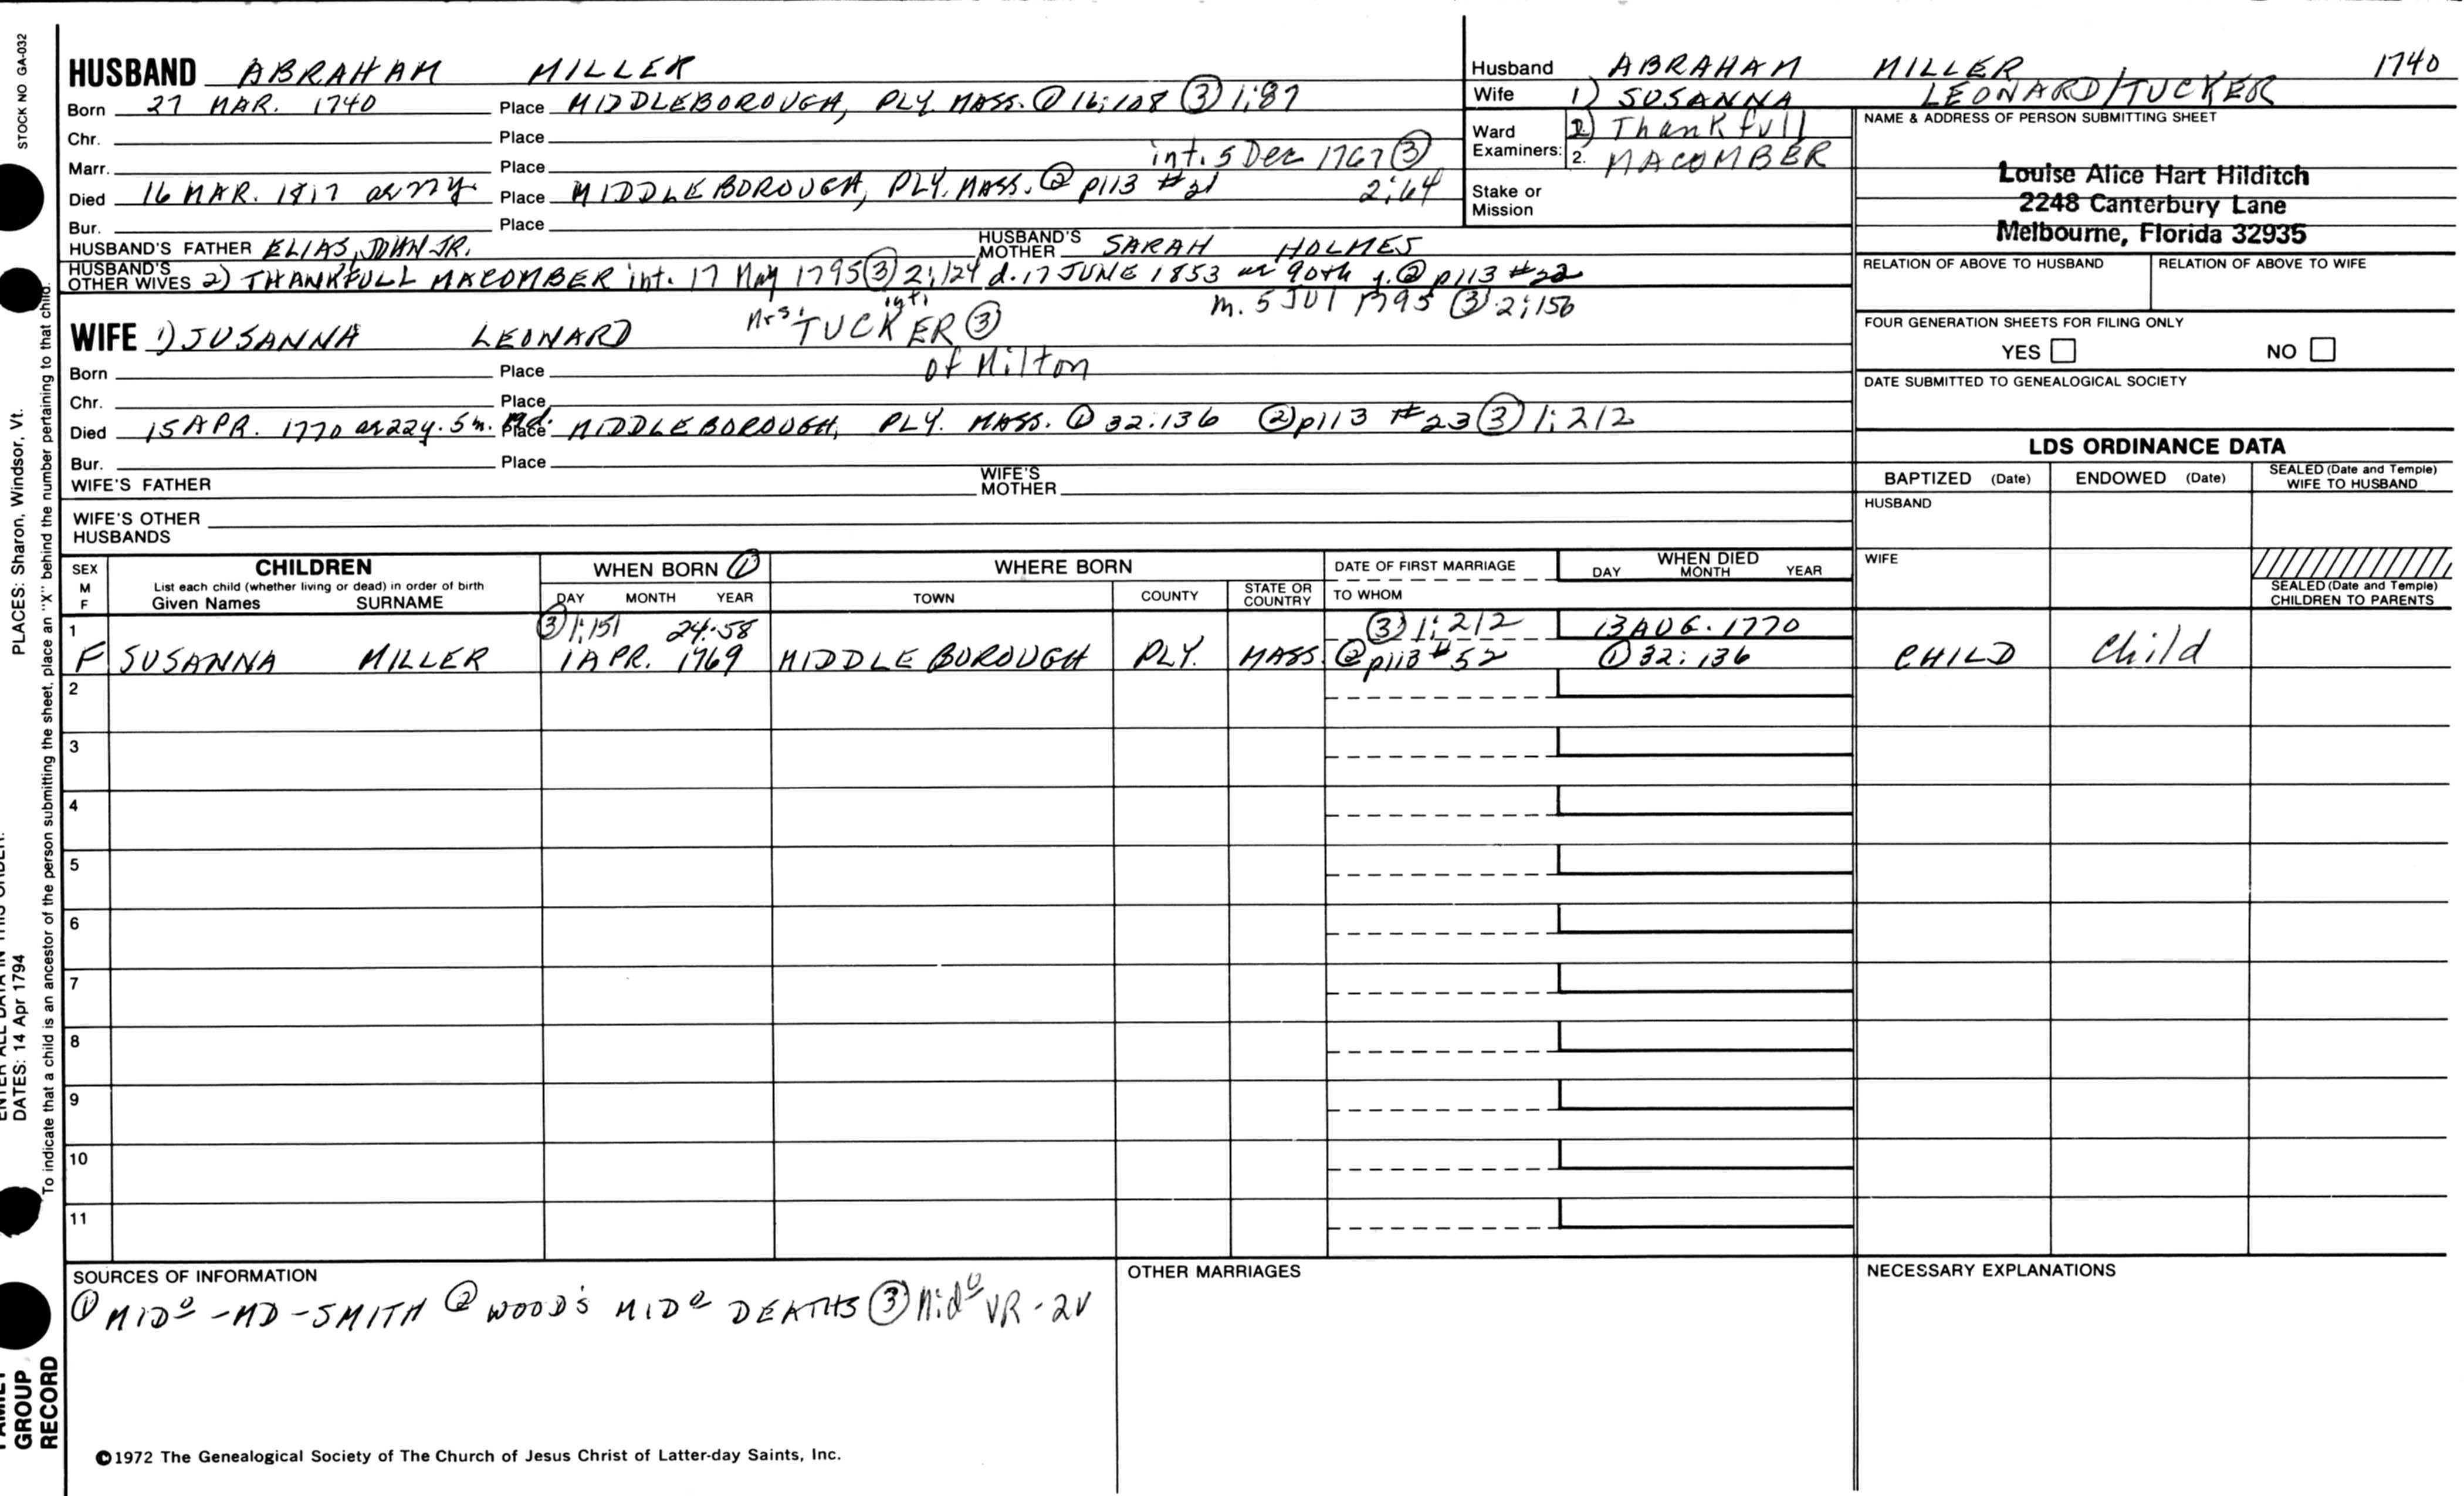 STOCK NO GA-032
HUSBAND ABRAHAM MILLER
Born 27 MAR. 1740 Place MIDDLEBOROUGH, PLY. MASS. ① 16:108 ③ 1:87
Chr. Place
Marr. Place int. 5 Dec 1767 ③
2:64
Died 16 MAR. 1817 Place MIDDLEBOROUGH, PLY. MASS. ② p113 #21
Bur. Place
HUSBAND'S FATHER ELIAS, JOHN JR. HUSBAND'S MOTHER SARAH HOLMES
HUSBAND'S OTHER WIVES 2) THANKFULL MACOMBER int. 17 May 1795 ③ 2:124 d. 17 JUNE 1853 ae 90th y. ② p113 #22
m. 5 JUl 1795 ③ 2:156
WIFE 1) SUSANNA LEONARD Mrs. int. TUCKER ③
of Milton
Born Place
Chr. Place
Died 15 APR. 1770 ae 22y. 5m. Place MIDDLEBOROUGH, PLY. MASS. ① 32:136 ② p113 #23 ③ 1:212
Bur. Place
WIFE'S FATHER WIFE'S MOTHER
WIFE'S OTHER HUSBANDS
Husband ABRAHAM MILLER 1740
Wife 1) SUSANNA LEONARD/TUCKER
Ward Examiners: 2) Thankfull
2. MACOMBER
Stake or Mission
NAME & ADDRESS OF PERSON SUBMITTING SHEET
Louise Alice Hart Hilditch
2248 Canterbury Lane
Melbourne, Florida 32935
RELATION OF ABOVE TO HUSBAND RELATION OF ABOVE TO WIFE
FOUR GENERATION SHEETS FOR FILING ONLY
YES NO
DATE SUBMITTED TO GENEALOGICAL SOCIETY
LDS ORDINANCE DATA
BAPTIZED (Date) ENDOWED (Date) SEALED (Date and Temple) WIFE TO HUSBAND
HUSBAND
WIFE
SEALED (Date and Temple) CHILDREN TO PARENTS
SEX M F
CHILDREN
List each child (whether living or dead) in order of birth
Given Names SURNAME
WHEN BORN ①
DAY MONTH YEAR
WHERE BORN
TOWN COUNTY STATE OR COUNTRY
DATE OF FIRST MARRIAGE
TO WHOM
WHEN DIED
DAY MONTH YEAR
1 ③ 1:151 24:58 ③ 1:212 13 AUG. 1770
F SUSANNA MILLER 1 APR. 1769 MIDDLEBOROUGH PLY. MASS. ② p113 #52 ① 32:136 CHILD Child
2
3
4
5
6
7
8
9
10
11
SOURCES OF INFORMATION
① MIDº-MD-SMITH ② WOOD'S MIDº DEATHS ③ Midº VR-2V
OTHER MARRIAGES
NECESSARY EXPLANATIONS
©1972 The Genealogical Society of The Church of Jesus Christ of Latter-day Saints, Inc.
PLACES: Sharon, Windsor, Vt.
DATES: 14 Apr 1794
To indicate that a child is an ancestor of the person submitting the sheet, place an "X" behind the number pertaining to that child.
GROUP
RECORD